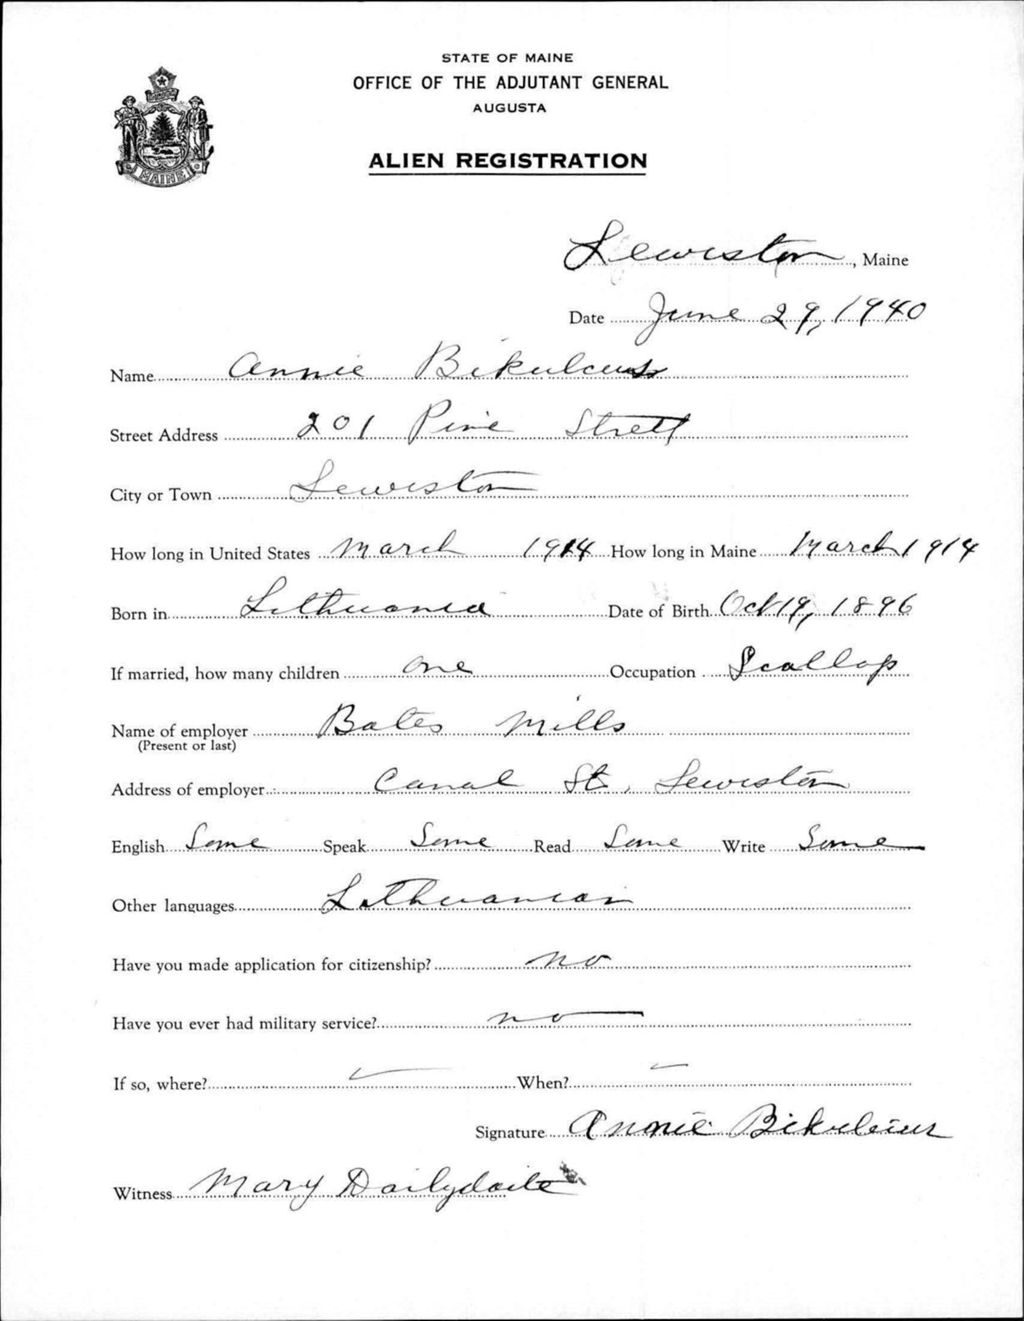 STATE OF MAINE
OFFICE OF THE ADJUTANT GENERAL
AUGUSTA
ALIEN REGISTRATION
MAINE
Lewiston, Maine
Date June 29, 1940
Name Annie
Street Address 201 Pine Strett
City or Town Lewiston
How long in United States March 1914 How long in Maine March 1914
Born in Lithuania Date of Birth Oct 19, 1896
If married, how many children one Occupation Scallop
Name of employer Bates Mills
(Present or last)
Address of employer Canal St, Lewiston
English Some Speak Some Read Some Write Some
Other languages Lithuanian
Have you made application for citizenship? no
Have you ever had military service? no
If so, where? When?
Signature Annie
Witness Mary Dailydaite